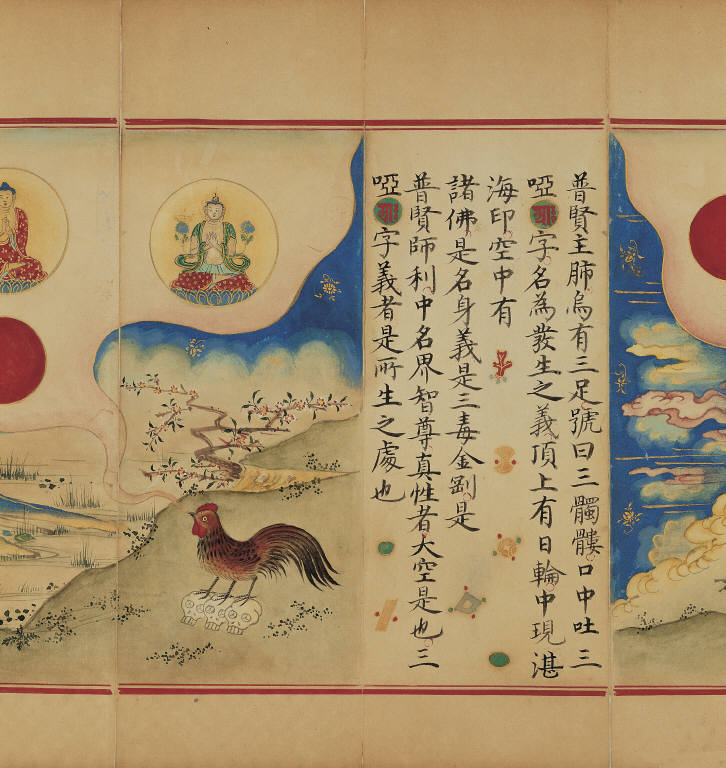 普賢主肺烏有三足號曰三髑髏口中吐三
啞字名為發生之義頂上有日輪中現湛
海印空中有
諸佛是名身義是三毒金剛是
普賢師利中名界智尊真性者大空是也三
啞字義者是所生之處也